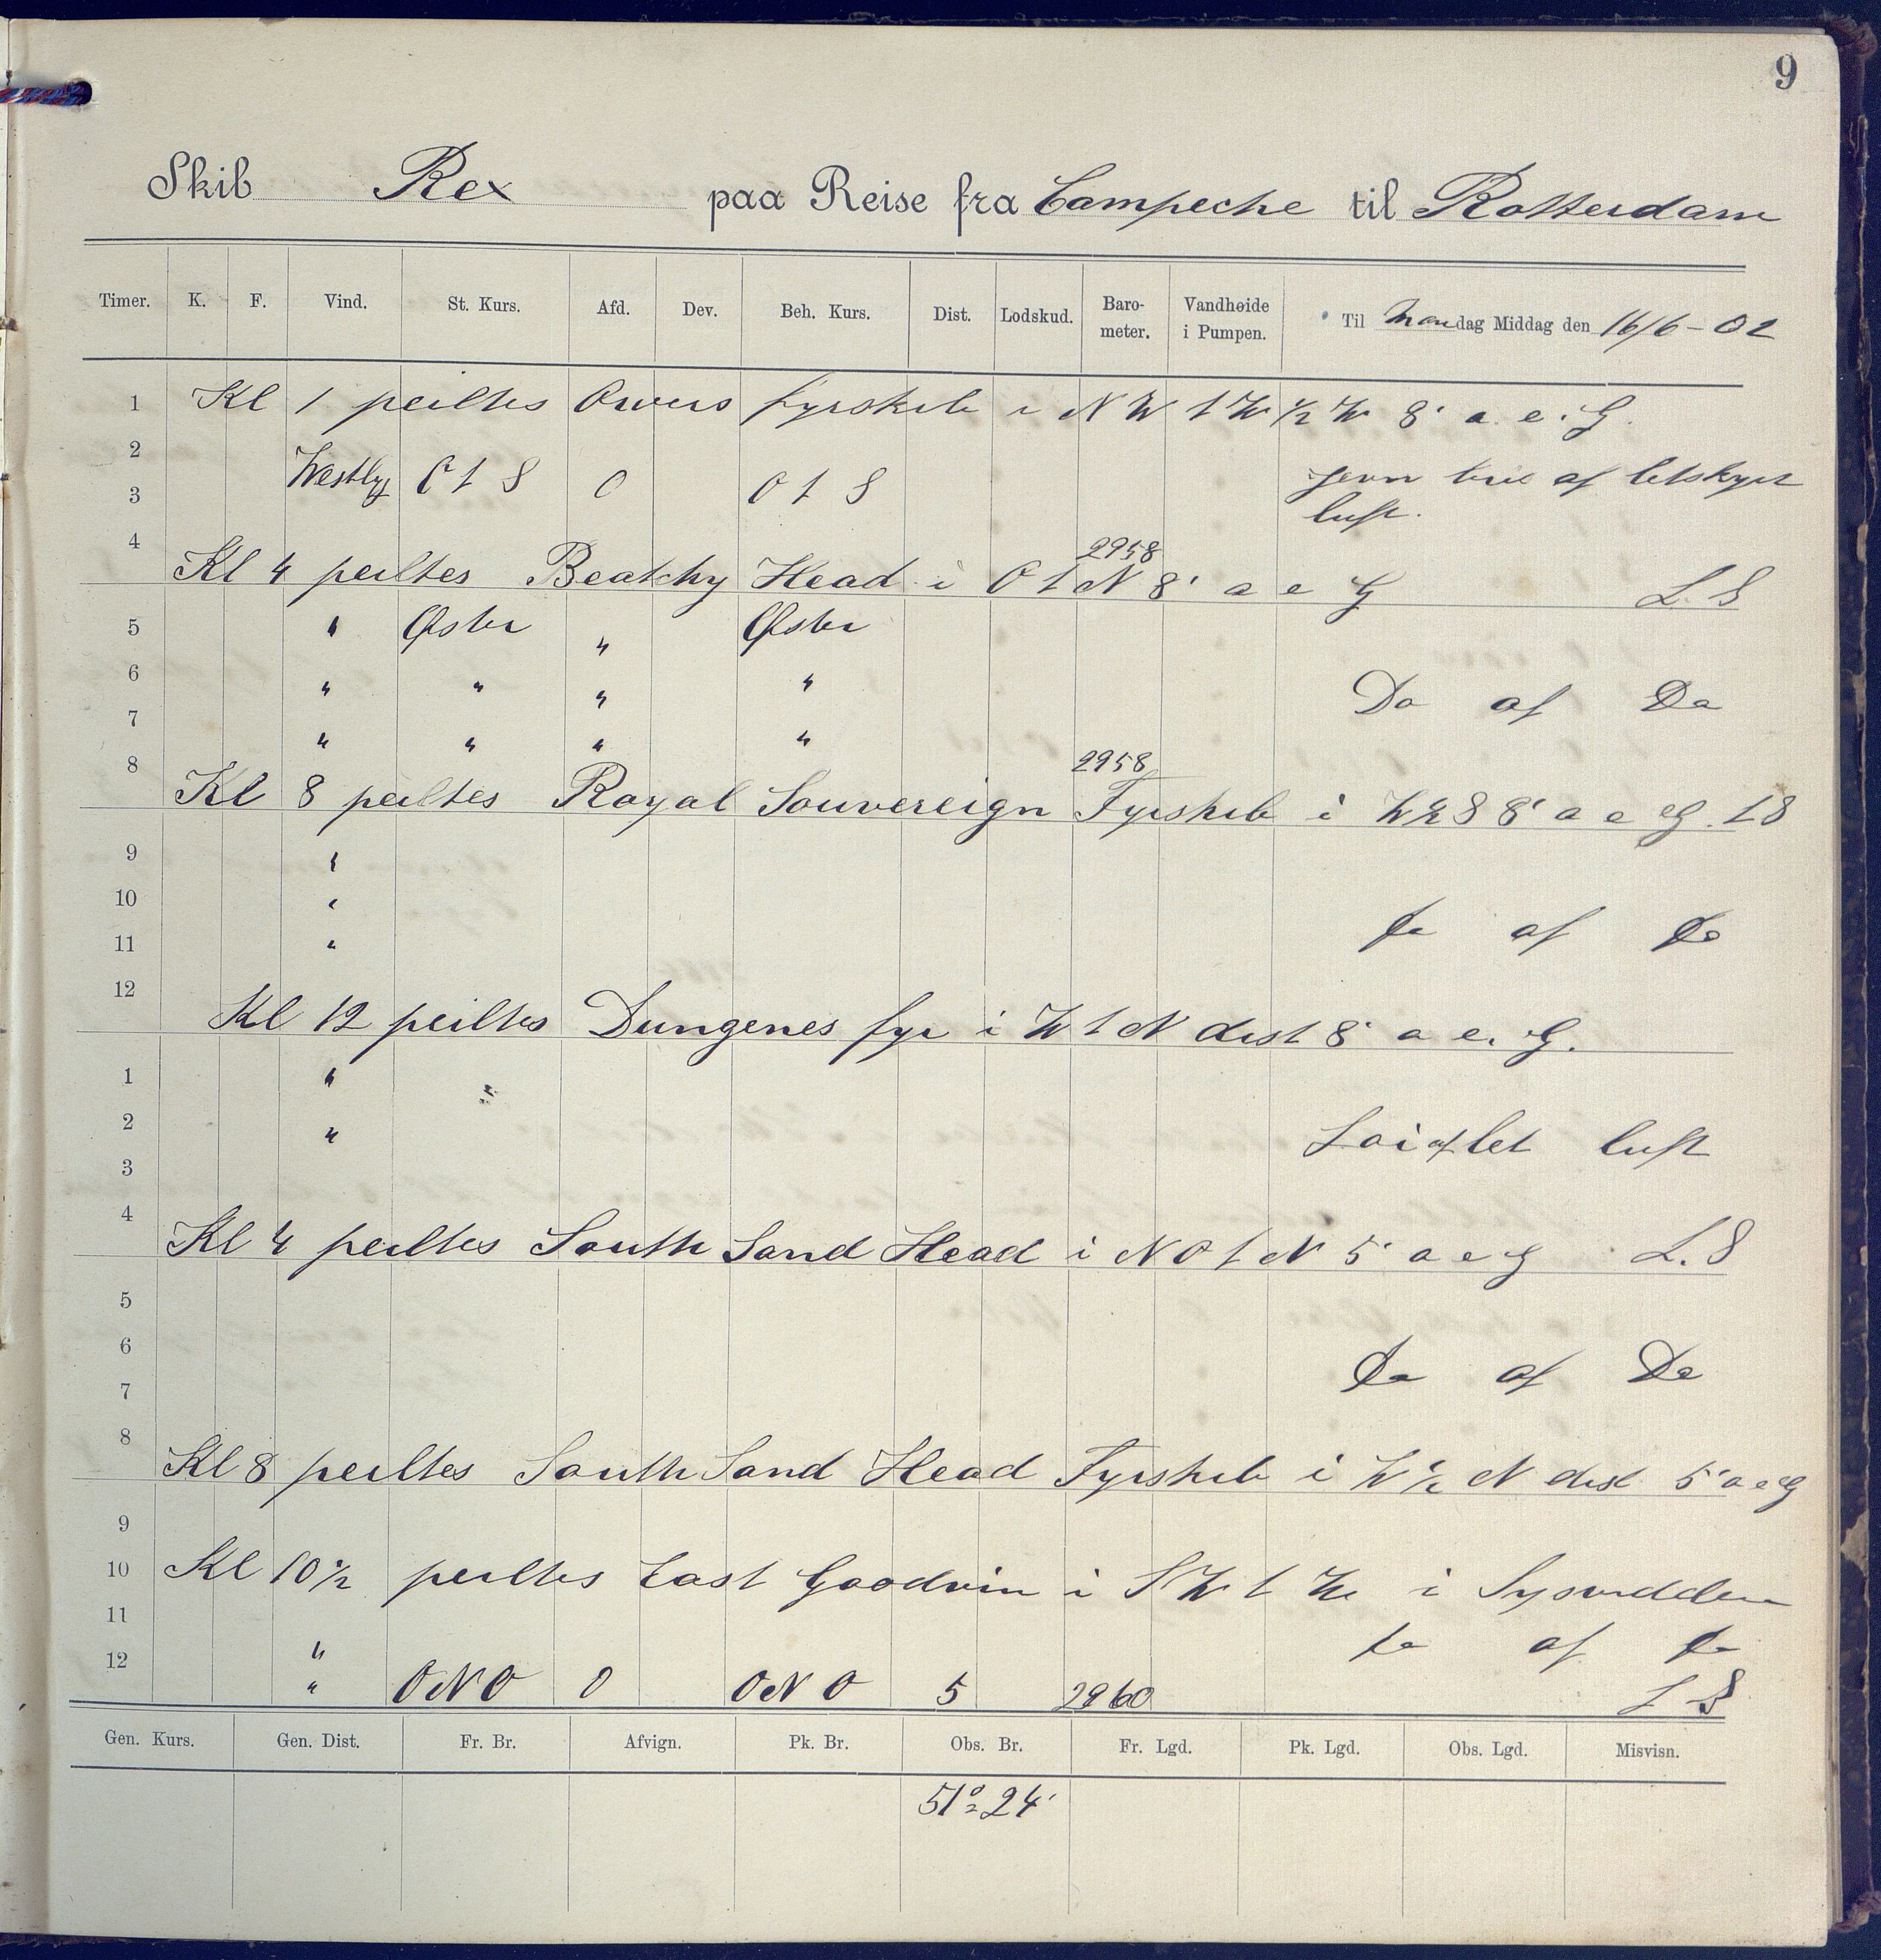 9
Skib Rex paa Reise fra Campeche til Rotterdam
Timer. K. F. Vind. St. Kurs. Afd. Dev. Beh. Kurs. Dist. Lodskud. Barometer. Vandhøide i Pumpen. Til Mandag Middag den 16/6-02
1 Kl 1 peiltes Owers fyrskib i N W t W 1/2 W 8' a. e. G.
2
3 Westly O t S 0 O t S jevn bris af letskyet
luft.
4 2958
Kl 4 peiltes Beatchy Head i O t N 8' a e G L. S
5 " Øster " Øster
6 " " " " Do af Do
7 " " " "
8 2958
Kl 8 peiltes Royal Souvereign Fyrskib i 8' a e G. L S
9 "
10 " Do af Do
11 "
12
Kl 12 peiltes Dungenes fyr i W t N dist 8' a e. G.
1 "
2 " af let luft
3
4
Kl 4 peiltes South Sand Head i N O t N 5' a e G L. S
5
6 Do af Do
7
8
Kl 8 peiltes South Sand Head Fyrskib i W 1/2 N dist 5' a e G
9
10 Kl 10 1/2 peiltes East Goodvin i S W t W i Synsvidden
11 " Do af Do
12 " O N O 0 O N O 5 2960 L S
Gen. Kurs. Gen. Dist. Fr. Br. Afvign. Pk. Br. Obs. Br. Fr. Lgd. Pk. Lgd. Obs. Lgd. Misvisn.
51° 24'